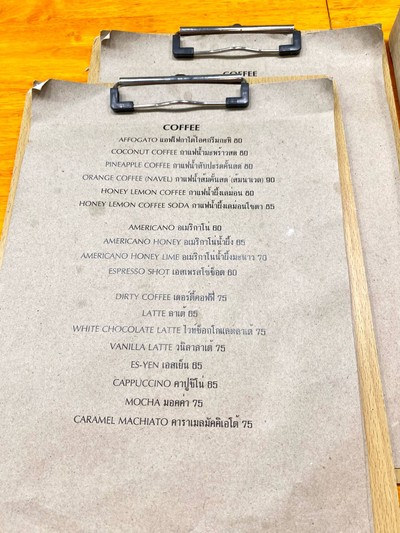 COFFEE
COFFEE
AFFOGATO แอฟโฟกาโตไอศกรีมกะทิ 80
COCONUT COFFEE กาแฟน้ำมะพร้าวสด 80
PINEAPPLE COFFEE กาแฟน้ำสับปะรดคั้นสด 80
ORANGE COFFEE (NAVEL) กาแฟน้ำส้มคั้นสด (ส้มนาเวล) 90
HONEY LEMON COFFEE กาแฟน้ำผึ้งเลม่อน 80
HONEY LEMON COFFEE SODA กาแฟน้ำผึ้งเลม่อนโซดา 85
AMERICANO อเมริกาโน่ 60
AMERICANO HONEY อเมริกาโน่น้ำผึ้ง 65
AMERICANO HONEY LIME อเมริกาโน่น้ำผึ้งมะนาว 70
ESPRESSO SHOT เอสเพรสโซ่ช็อต 60
DIRTY COFFEE เดอร์ตี้คอฟฟี่ 75
LATTE ลาเต้ 65
WHITE CHOCOLATE LATTE ไวท์ช็อกโกแลตลาเต้ 75
VANILLA LATTE วนิลาลาเต้ 75
ES-YEN เอสเย็น 65
CAPPUCCINO คาปูชิโน่ 65
MOCHA มอคค่า 75
CARAMEL MACHIATO คาราเมลมัคคิเอโต้ 75